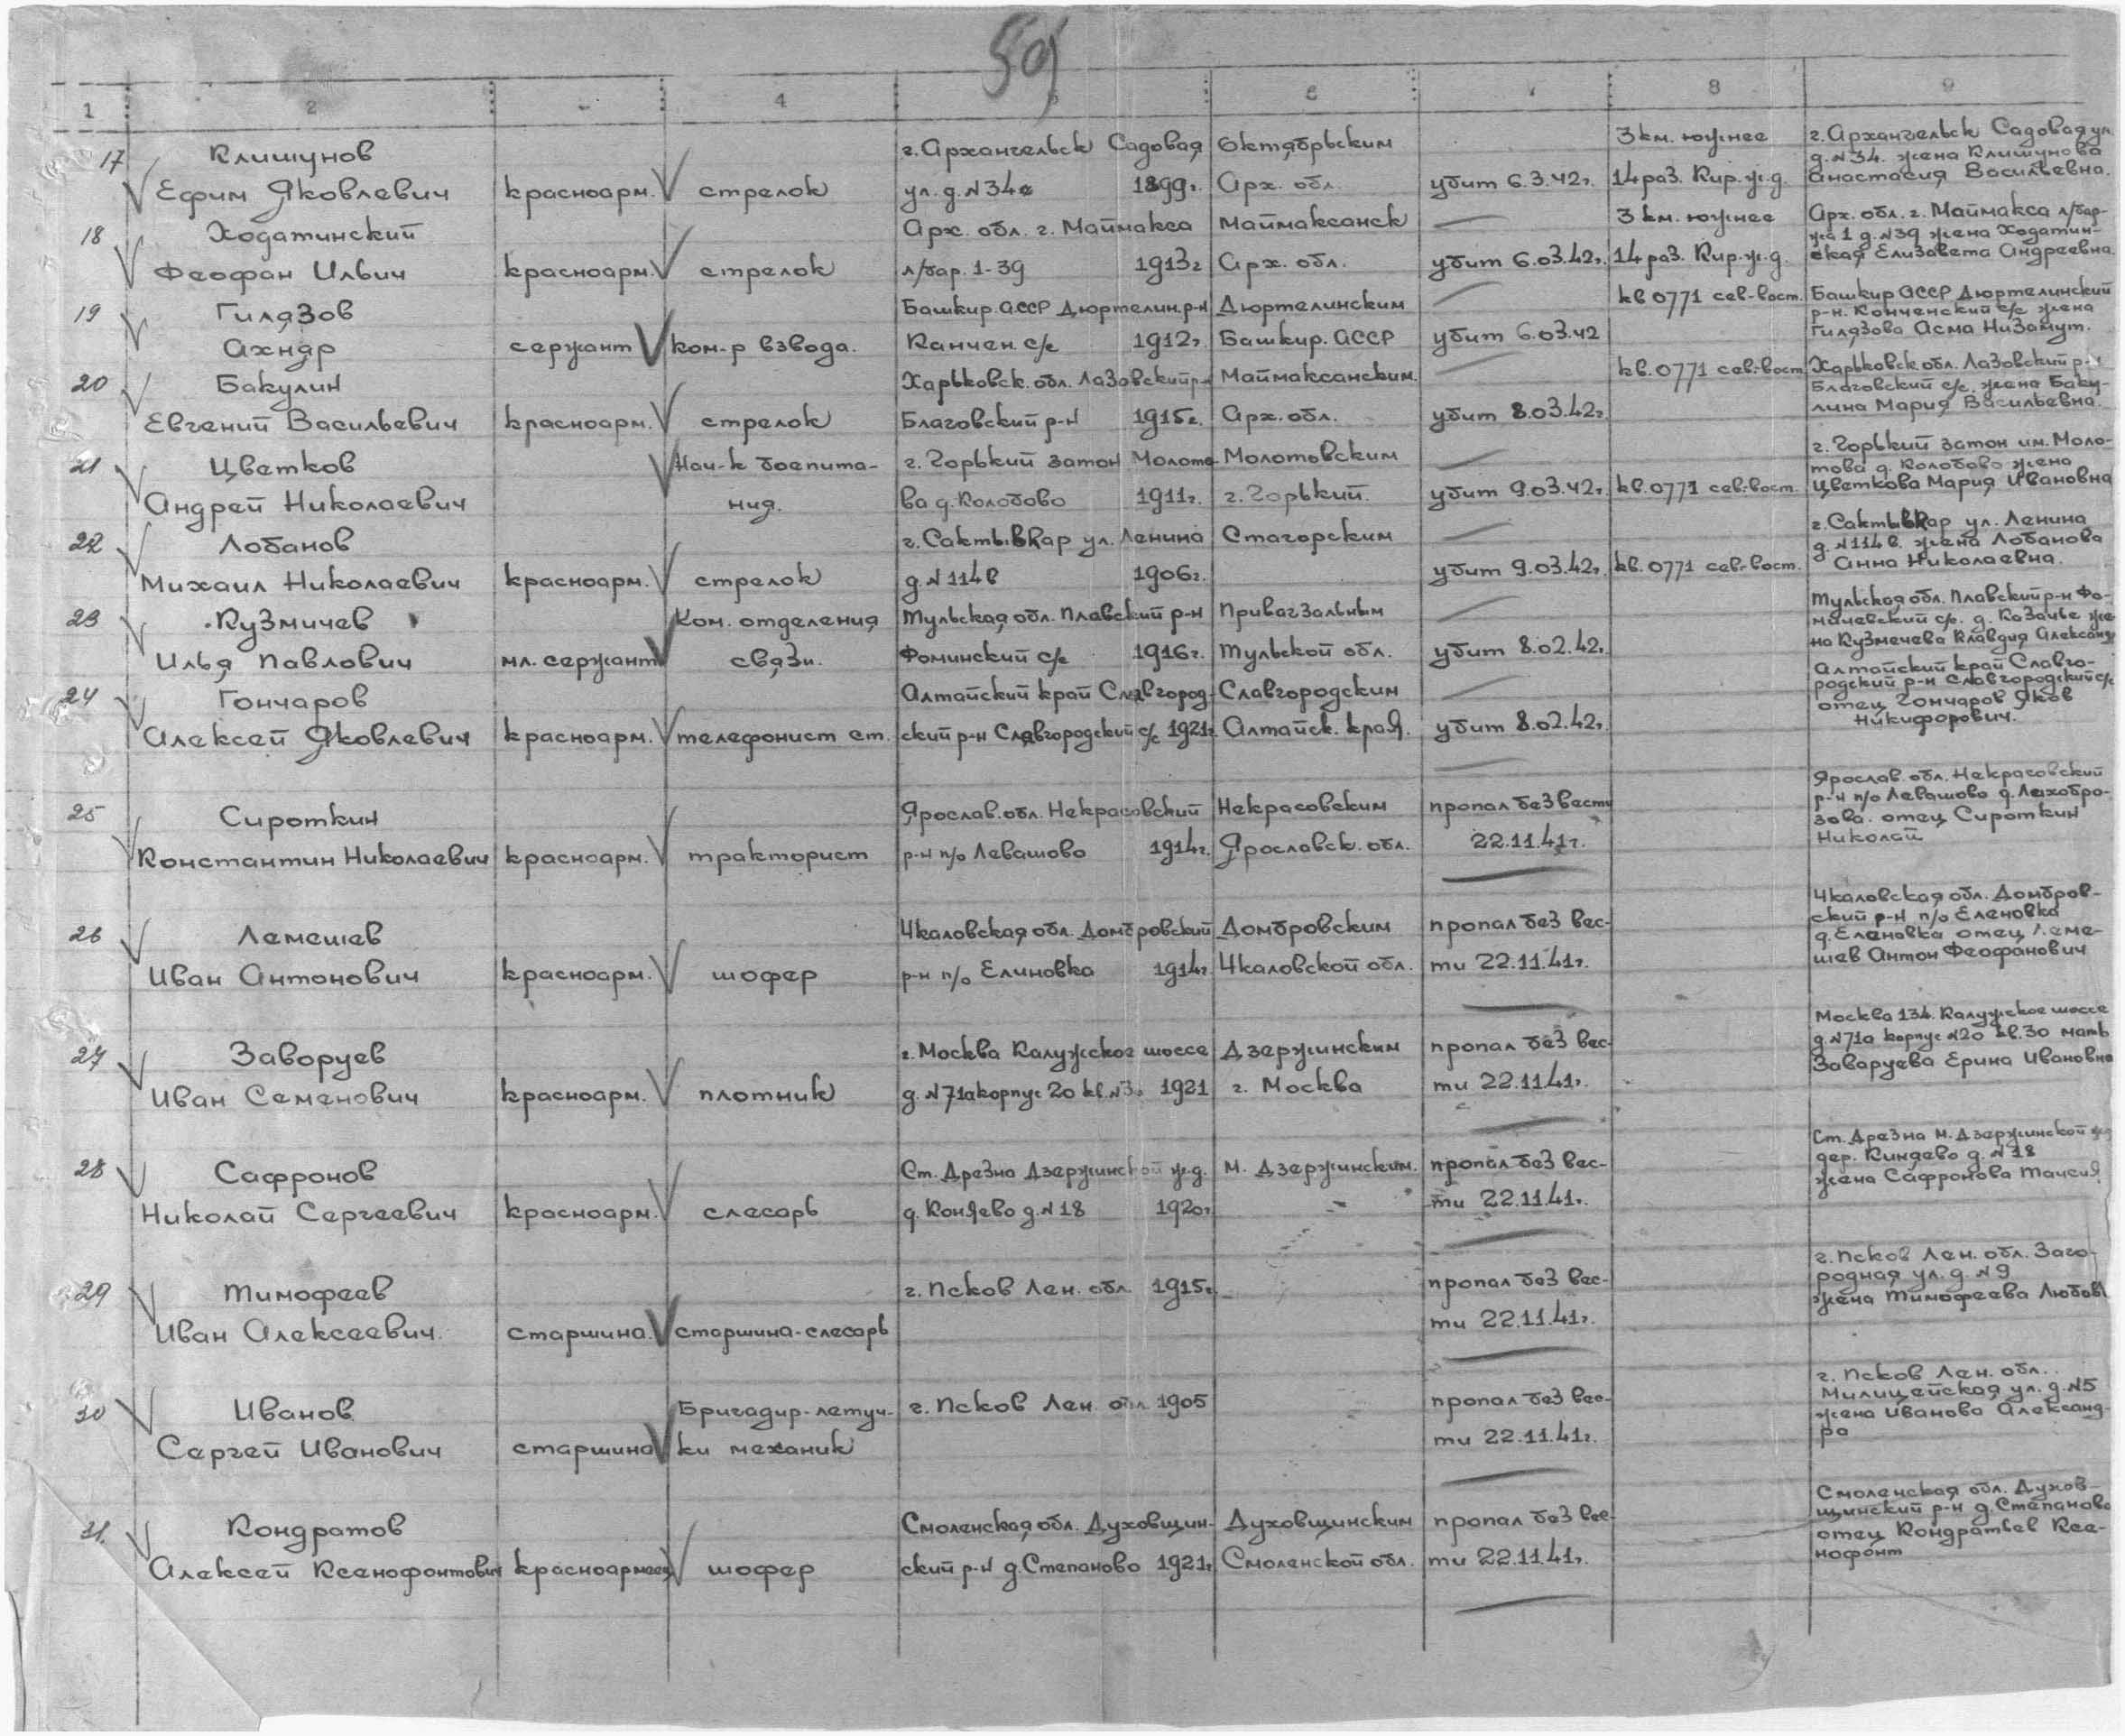 59
1 2 4 6 8 9
17 Клишунов г. Архангельск Садовая Октябрьским 3 км. южнее г. Архангельск Садовая ул.
д. №34. жена Клишунова
Ефим Яковлевич красноарм. стрелок ул. д. №34 1899г. Арх. обл. убит 6.3.42г. 14 раз. Кир. ж.д. Анастасия Васильевна.
18 Ходатинский Арх. обл. г. Маймакса Маймаксанск 3 км. южнее Арх. обл. г. Маймакса л/бар-
жа 1 д. №39 жена Ходатин-
Феофан Ильич красноарм. стрелок л/бар. 1-39 1913г Арх. обл. убит 6.03.42г. 14 раз. Кир. ж.д. ская Елизавета Андреевна
19 Гилязов Башкир. АССР Дюртелин. р-н Дюртелинским кв 0771 сев-вост. Башкир АССР Дюртелинский
р-н. Конченский с/с жена
Ахняр сержант ком-р взвода. Канчен. с/с 1912г. Башкир. АССР убит 6.03.42 Гилязова Асма Низамут.
20 Бакулин Харьковск. обл. Лазовский р-н Маймаксанским. кв. 0771 сев-вост. Харьковск. обл. Лазовский р-н
Благовский с/с. жена Баку-
Евгений Васильевич красноарм. стрелок Благовский р-н 1915г. Арх. обл. убит 8.03.42г. лина Мария Васильевна.
21 Цветков Нач-к боепита- г. Горький затон Молото- Молотовским г. Горький затон им. Моло-
това д. Колобово жена
Андрей Николаевич ния. ва д. Колобово 1911г. г. Горький. убит 9.03.42г. кв. 0771 сев-вост. Цветкова Мария Ивановна
22 Лобанов г. Сактывкар ул. Ленина Стагорским г. Сактывкар ул. Ленина
д. №114 в. жена Лобанова
Михаил Николаевич красноарм. стрелок д. №114 в 1906г. убит 9.03.42г. кв. 0771 сев-вост. Анна Николаевна.
23 Кузмичев Ком. отделения Тульская обл. Плавский р-н Привагзальным Тульская обл. Плавский р-н Фо-
мичевский с/с. д. Казачье же-
Илья Павлович мл. сержант связи. Фоминский с/с 1916г. Тульской обл. убит 8.02.42г. на Кузмечева Клавдия Александ
24 Гончаров Алтайский край Славгород- Славгородским Алтайский край Славго-
родский р-н Славгородский с/с
отец Гончаров Яков
Алексей Яковлевич красноарм. телефонист ст. ский р-н Славгородский с/с 1921г. Алтайск. края. убит 8.02.42г. Никифорович.
25 Сироткин Ярослав. обл. Некрасовский Некрасовским пропал без вести Ярослав. обл. Некрасовский
р-н п/о Левашово д. Лихобро-
зова. отец Сироткин
Константин Николаевич красноарм. тракторист р-н п/о Левашово 1914г. Ярославск. обл. 22.11.41г. Николай
26 Лемешев Чкаловская обл. Домбровский Домбровским пропал без вес- Чкаловская обл. Домбров-
ский р-н п/о Еленовка
д. Еленовка отец Леме-
Иван Антонович красноарм. шофер р-н п/о Елиновка 1914г. Чкаловской обл. ти 22.11.41г. шев Антон Феофанович
27 Заворуев г. Москва Калужское шоссе Дзержинским пропал без вес- Москва 134. Калужское шоссе
д. №71а корпус №20 кв. 30 мать
Иван Семенович красноарм. плотник д. №71а корпус 20 кв. 1921 г. Москва ти 22.11.41г. Заваруева Ерина Ивановна
28 Сафронов Ст. Дрезна Дзержинской ж.д. М. Дзержинским. пропал без вес- Ст. Дрезна М. Дзержинской ж.д
дер. Киндево д. №18
Николай Сергеевич красноарм. слесарь д. Коняево д. №18 1920г. ти 22.11.41г. жена Сафронова Таисия
29 Тимофеев г. Псков Лен. обл. 1915г. пропал без вес- г. Псков Лен. обл. Заго-
родная ул. д. №9
Иван Алексеевич. старшина. старшина-слесарь ти 22.11.41г. жена Тимофеева Любовь
30 Иванов Бригадир-летуч- г. Псков Лен. обл. 1905 пропал без вес- г. Псков Лен. обл.
Милицейская ул. д. №5
Сергей Иванович старшина ки механик ти 22.11.41г. жена Иванова Александ-
ра
31. Кондратов Смоленская обл. Духовщин- Духовщинским пропал без вес- Смоленская обл. Духов-
щинский р-н д. Степаново
отец Кондратьев Ксе-
Алексей Ксенофонтович красноармеец шофер ский р-н д. Степаново 1921г. Смоленской обл. ти 22.11.41г. нофонт